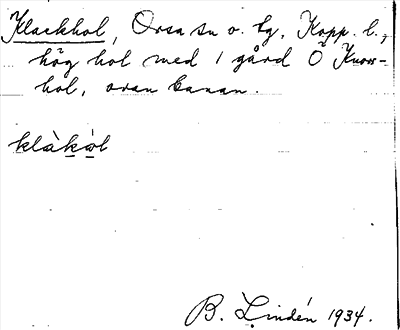 Klackhol, Orsa sn o. tg, Kopp. l.,
hög hol med 1 gård Ö Knos-
hol, ovan banan.
klàkòl
B. Lindén 1934.